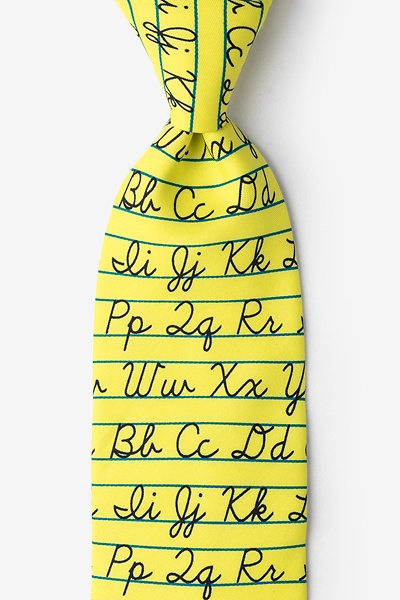 Ii Jj Kk
Cc
Ww Xx
Bb Cc Dd
Ii Jj Kk L
Pp Qq Rr
w Ww Xx Y
Bb Cc Dd
Ii Jj Kk L
Pp Qq Rr